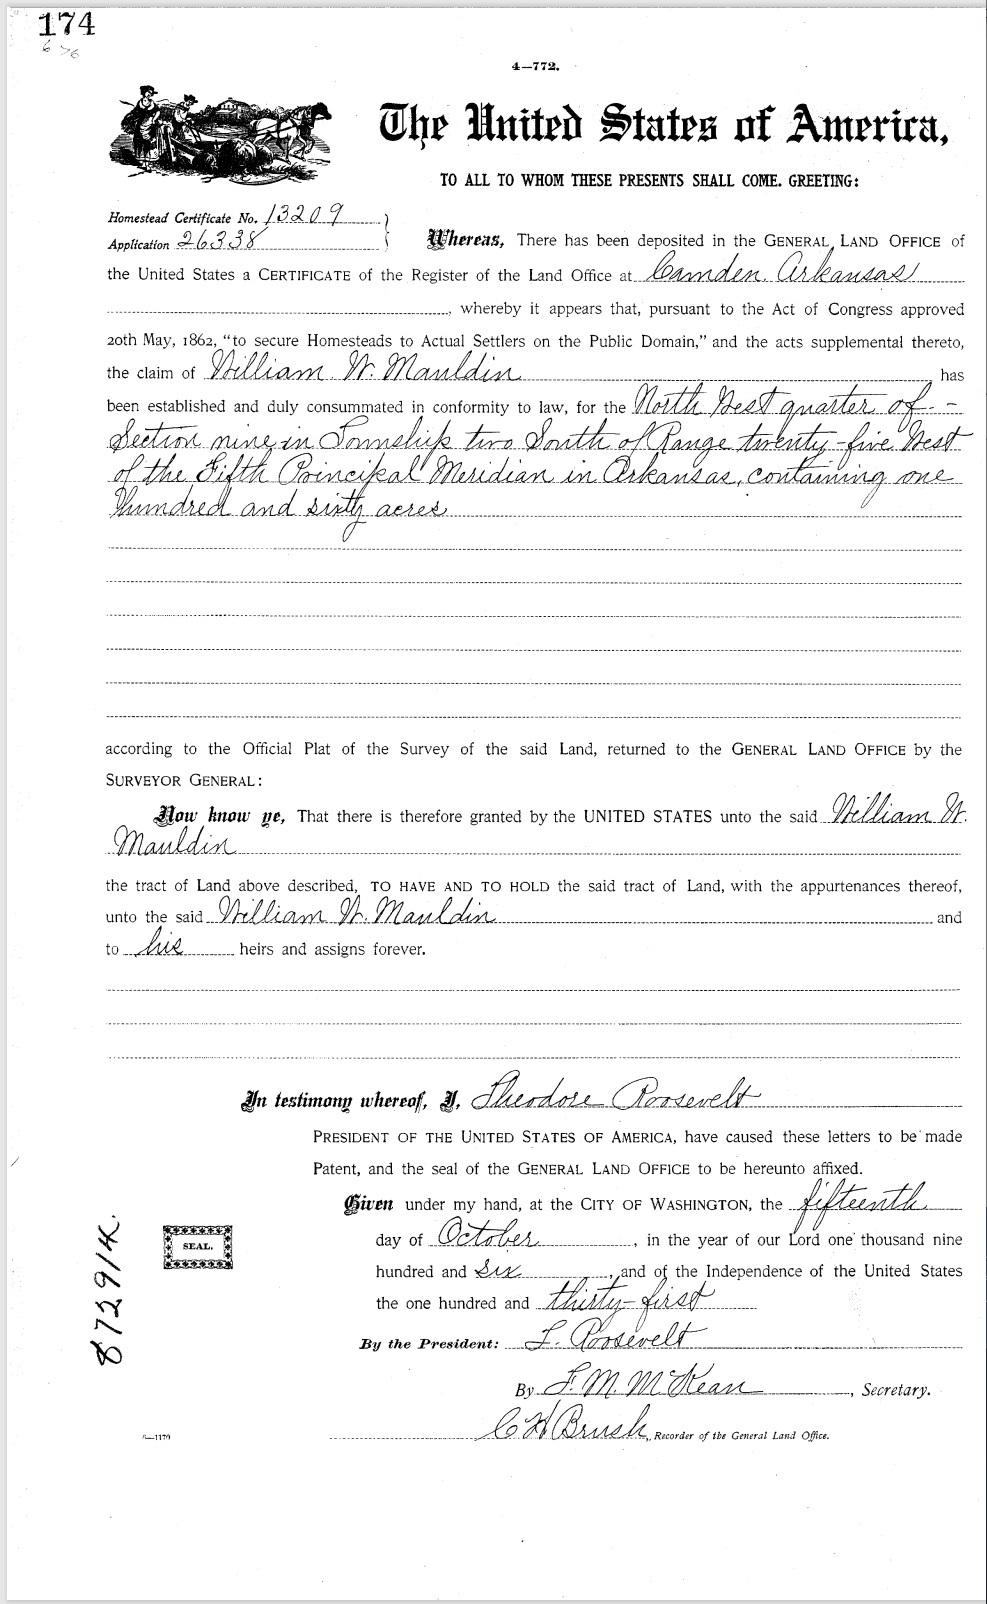 174
6 76
4—772.
The United States of America,
TO ALL TO WHOM THESE PRESENTS SHALL COME. GREETING:
Homestead Certificate No. 13209
Application 26338
Whereas, There has been deposited in the GENERAL LAND OFFICE of
the United States a CERTIFICATE of the Register of the Land Office at Camden. Arkansas
, whereby it appears that, pursuant to the Act of Congress approved
20th May, 1862, "to secure Homesteads to Actual Settlers on the Public Domain," and the acts supplemental thereto,
the claim of William W. Mauldin has
been established and duly consummated in conformity to law, for the North West quarter of - -
Section nine in Township two South of Range twenty-five West
of the Fifth Principal Meridian in Arkansas, containing one
hundred and sixty acres
according to the Official Plat of the Survey of the said Land, returned to the GENERAL LAND OFFICE by the
SURVEYOR GENERAL:
Now know ye, That there is therefore granted by the UNITED STATES unto the said William W.
Mauldin
the tract of Land above described, TO HAVE AND TO HOLD the said tract of Land, with the appurtenances thereof,
unto the said William W. Mauldin and
to his heirs and assigns forever.
In testimony whereof, I, Theodore Roosevelt
PRESIDENT OF THE UNITED STATES OF AMERICA, have caused these letters to be made
Patent, and the seal of the GENERAL LAND OFFICE to be hereunto affixed.
Given under my hand, at the CITY OF WASHINGTON, the fifteenth
day of October, in the year of our Lord one thousand nine
hundred and six, and of the Independence of the United States
the one hundred and thirty-first
By the President: T. Roosevelt
By F. M. McKean, Secretary.
C H Brush, Recorder of the General Land Office.
SEAL.
87291K.
6—1170